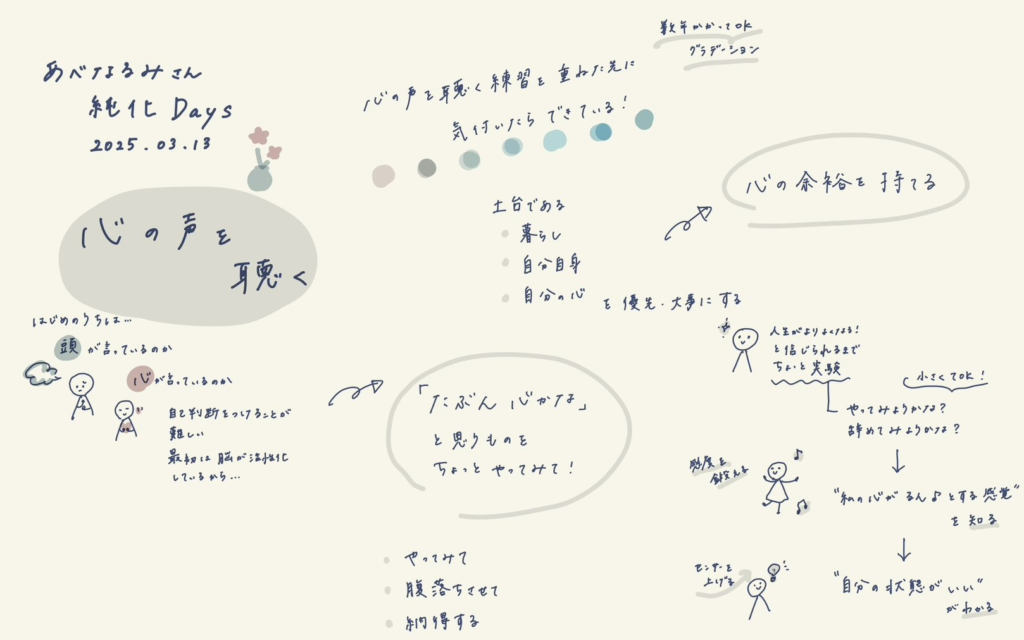 あべなるみさん
純化 Days
2025.03.13
心の声を
聴く
はじめのうちは…
頭が言っているのか
心が言っているのか
自己判断をつけることが
難しい
最初は脳が活性化
しているから…
「たぶん 心かな」
と思うものを
ちょっと やってみて！
やってみて
腹落ちさせて
納得する
心の声を聴く練習を重ねた先に
気付いたら できている！
数年かかってOK
グラデーション
土台である
暮らし
自分自身
自分の心
を優先・大事にする
心の余裕を持てる
人生がよりよくなる！
と信じられるまで
ちょっと実験
小さくてOK！
やってみようかな？
辞めてみようかな？
感度を
鍛える
"私の心がるん♪とする感覚"
を知る
センサーを
上げる
"自分の状態がいい"
がわかる